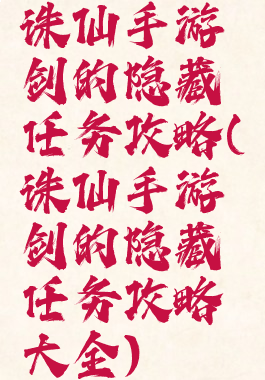 诛仙手游
剑的隐藏
任务攻略(
诛仙手游
剑的隐藏
任务攻略
大全)